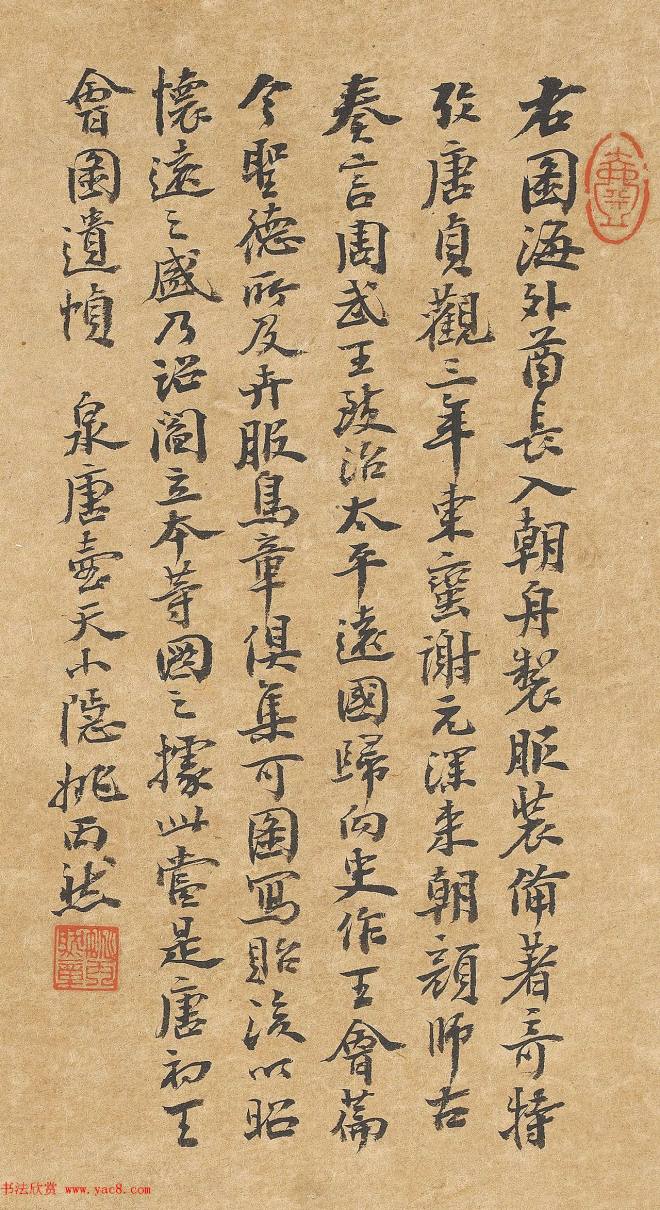 右圖海外酋長入朝舟製服裝備著奇特
攷唐貞觀三年東蠻謝元深来朝顔師古
奏言周武王致治太平遠國歸向史作王會篇
今聖德所及卉服鳥章俱集可圖寫貽後以昭
懷遠之盛乃詔閻立本等圖之據此當是唐初王
會圖遺幀 泉唐壺天小隱姚丙然
书法欣赏 www.yac8.com